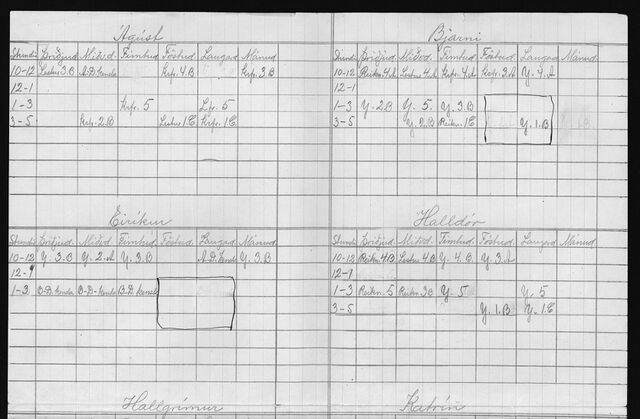 Ágúst
Stundir Þriðjud. Miðvd. Fimtud. Föstud. Laugad. Mánud.
10-12 Lestur 3.B A-D. Kensla Krp. 4.B Krp. 3.B
12-1
1-3 Krp. 5 Lpr. 5
3-5 Krp. 2.B Lestur 1.C Krp. 1C
Bjarni
Stund. Þriðjud. Miðvd. Fimtud. Föstud. Laugad. Mánud.
10-12 Reikn. 4.A Lestur 4.A Krp. 4.A Krp. 3.A Y. 4.A
12-1
1-3 Y. 2.B Y. 5 Y. 3.B
3-5 Y. 2.B Reikn. 1C Y. 1.B
Eiríkur
Stundir Þriðjud. Miðvd. Fimtud. Föstud. Laugad. Mánud.
10-12 Y. 3.B Y. 2-A Y. 3.B A-D. Kensla Y. 3.B
12-1
1-3 B-D. Kensla B-D. Kensla B-D. Kensla
Halldór
Stund. Þriðjud. Miðvd. Fimtud. Föstud. Laugad. Mánud.
10-12 Reikn. 4.B Lestur 4.B Y. 4.B. Y. 3.A
12-1
1-3 Reikn. 5 Reikn. 3B Y. 5 Y. 5
3-5 Y. 1.B Y. 1C
Hallgrímur
Katrín